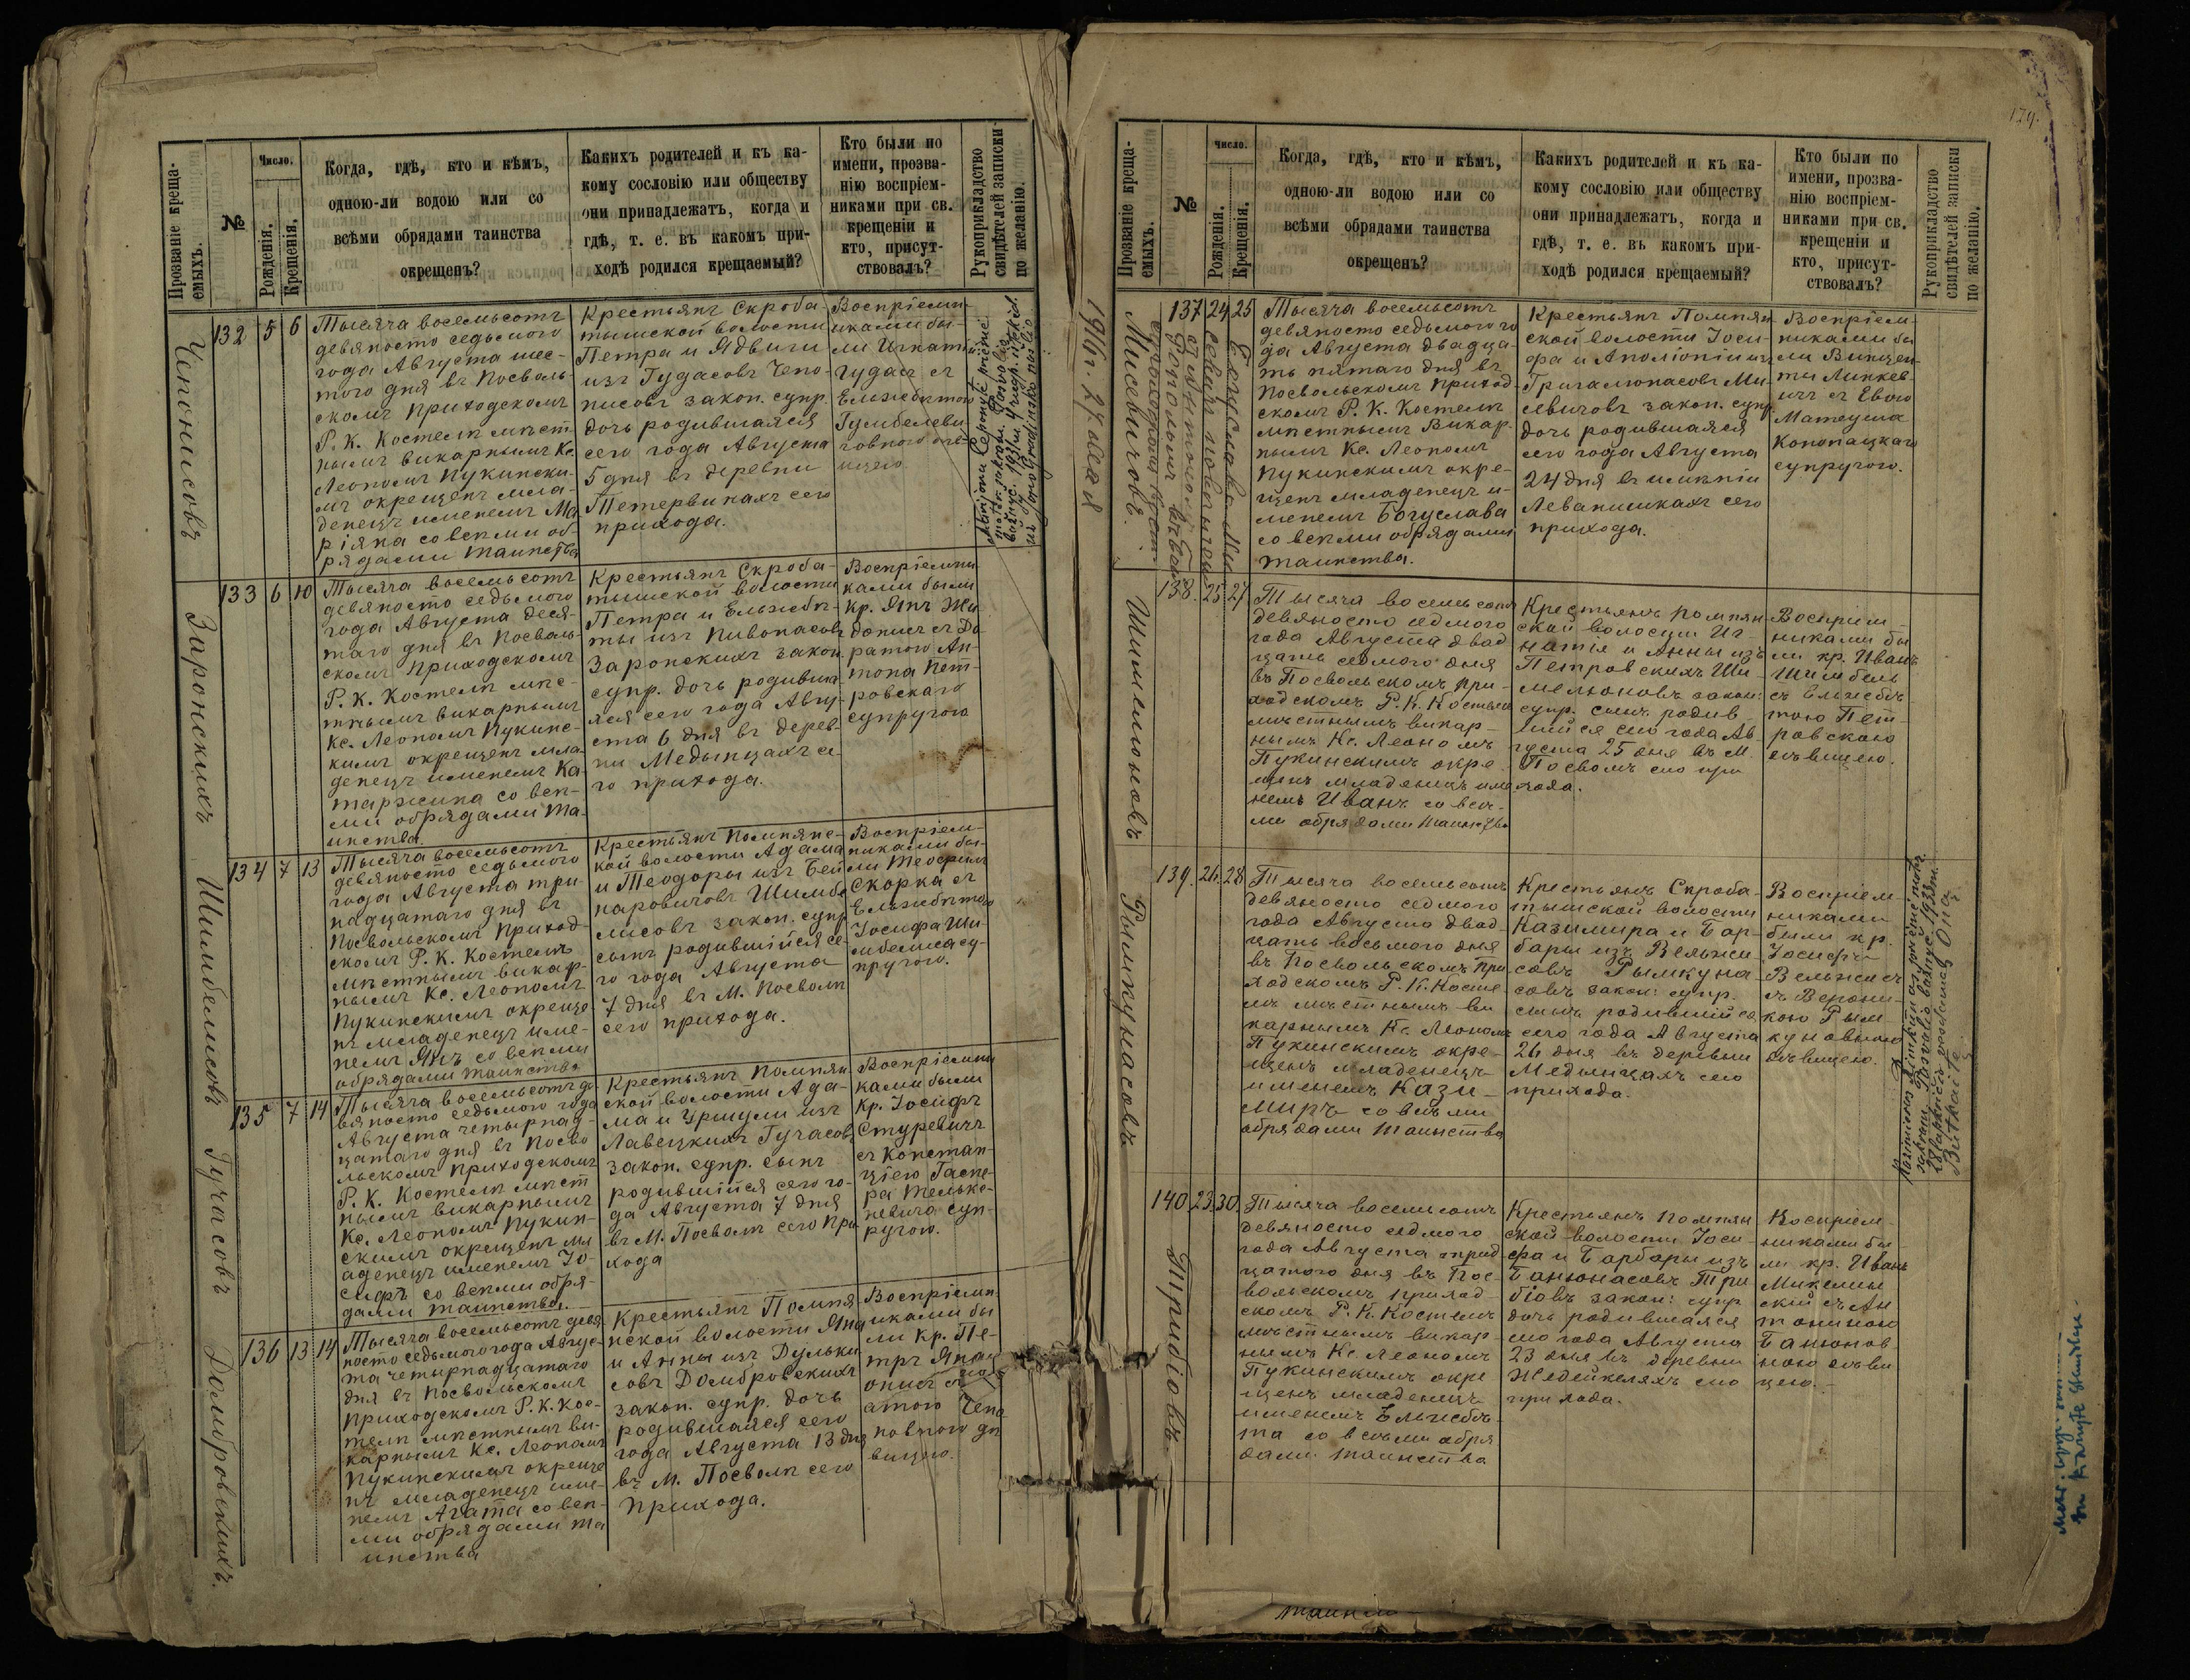 Прозваніе креща-
емыхъ.
№
Число.
Рожденія.
Крещенія.
Когда, гдѣ, кто и кѣмъ,
одною-ли водою или со
всѣми обрядами таинства
окрещенъ?
Какихъ родителей и къ ка-
кому сословію или обществу
они принадлежатъ, когда и
гдѣ, т. е. въ какомъ при-
ходѣ родился крещаемый?
Кто были по
имени, прозва-
нію воспріем-
никами при св.
крещеніи и
кто, присут-
ствовалъ?
Рукоприкладство
свидѣтелей записки
по желанію.
Чепонисовъ
132 5 6
Тысяча восемьсотъ
девяносто седьмого
года Августа шес-
того дня въ Посволь-
скомъ Приходскомъ
Р. К. Костелѣ мѣст-
нымъ викарнымъ Кс.
Леономъ Пукински-
мъ окрещенъ мла-
денецъ именемъ Ма
ріяна со всѣми об-
рядами таинства
Крестьянъ Скроба-
тышской волости
Петра и Ядвиги
изъ Гудасовъ Чепо-
нисовъ закон. супр.
дочь родившаяся
сего года Августа
5 дня въ деревни
Петервикахъ сего
прихода.
Воспріемн-
иками бы-
ли Игнатій
Гудасъ съ
Ельжбѣтою
Гумбелеви-
човною
Запонскихъ
133 6 10
Тысяча восемьсотъ
девяносто седьмого
года Августа деся-
таго дня въ Посволь-
скомъ Приходскомъ
Р. К. Костелѣ мѣс-
тнымъ викарнымъ
Кс. Леономъ Пукинс-
кимъ окрещенъ мла-
денецъ именемъ Ка-
таржина со всѣ-
ми обрядами та-
инства
Крестьянъ Скроба-
тышской волости
Петра и Ельжбѣ-
ты изъ Пивонасовъ
Запонскихъ закон.
супр. дочь родивша-
яся сего года Авгу-
ста 6 дня въ дерев-
ни Медынцахъ се-
го прихода.
Воспріемни-
ками были
кр. Янъ
съ До-
ратою Ан-
тона Пет-
ровскаго
супругою
Шимбелисовъ
134 7 13
Тысяча восемьсотъ
девяносто седьмого
года Августа три-
надцатаго дня въ
Посвольскомъ Приход-
скомъ Р. К. Костелѣ
мѣстнымъ викар-
нымъ Кс. Леономъ
Пукинскимъ окреще-
нъ младенецъ име-
немъ Янъ со всѣми
обрядами таинства
Крестьянъ Помпянс-
кой волости Адама
и Теодоры изъ Бей
наровичовъ Шимбе-
лисовъ закон. супр
сынъ родившійся се-
го года Августа
7 дня въ М. Посволѣ
сего прихода.
Воспріем-
никами бы-
ли Теофилъ
Скорка съ
Ельжбѣтою
Іосифа Ши-
мбелиса су-
пругою.
Гучасовъ
135 7 14
Тысяча восемьсотъ де
вяносто седьмого года
Августа четырнад-
цатаго дня въ Посво
льскомъ Приходскомъ
Р. К. Костелѣ мѣст
нымъ викарнымъ
Кс. Леономъ Пукин-
скимъ окрещенъ мл
аденецъ именемъ Іо-
сифъ со всѣми обря-
дами таинства.
Крестьянъ Помпян
ской волости Ада-
ма и Уршули изъ
Лавецкихъ Гучасовъ
закон. супр. сынъ
родившійся сего го-
да Августа 7 дня
въ М. Посволѣ сего При
хода
Воспріемни
ками были
Кр. Іосифъ
Стуревичъ
съ Констан-
ціею Гаспе-
ра Мельке-
невича суп-
ругою.
Домбровскихъ.
136 13 14
Тысяча восемьсотъ девя
носто седьмого года Авгус-
та четырнадцатаго
дня въ Посвольскомъ
Приходскомъ Р. К. Кос-
телѣ мѣстнымъ ви-
карнымъ Кс. Леономъ
Пукинскимъ окреще
нъ младенецъ име-
немъ Агата со всѣ-
ми обрядами та
инства
Крестьянъ Помпя
нской волости Яна
и Анны изъ Дульки
совъ Домбровскихъ
закон. супр. дочь
родившаяся сего
года Августа 13 дня
въ М. Посволѣ сего
Прихода.
Воспріемн
иками бы
ли Кр. Пе-
тръ
атою Чепо
новною дѣ
вицею.
1916 г. 27 мая
179.
Прозваніе креща-
емыхъ.
№
Число.
Рожденія.
Крещенія.
Когда, гдѣ, кто и кѣмъ,
одною-ли водою или со
всѣми обрядами таинства
окрещенъ?
Какихъ родителей и къ ка-
кому сословію или обществу
они принадлежатъ, когда и
гдѣ, т. е. въ какомъ при-
ходѣ родился крещаемый?
Кто были по
имени, прозва-
нію воспріем-
никами при св.
крещеніи и
кто, присут-
ствовалъ?
Рукоприкладство
свидѣтелей записки
по желанію.
Мисевичовъ.
137 24 25
Тысяча восемьсотъ
девяносто седьмого го
да Августа двадца-
ть пятаго дня въ
Посвольскомъ Приход-
скомъ Р. К. Костелѣ
мѣстнымъ Викар-
нымъ Кс. Леономъ
Пукинскимъ окре-
щенъ младенецъ и-
менемъ Богуслава
со всѣми обрядами
таинства.
Крестьянъ Помпян
ской волости Іоси-
фа и Аполіоніи изъ
Григалюнасовъ Ми-
севичовъ закон. супр.
дочь родившаяся
сего года Августа
24 дня въ имѣніи
Леванишкахъ сего
прихода.
Воспріем-
никами бы
ли Винцен-
ты Линкев-
ичъ съ Евою
Матеуша
Конопацкаго
супругою.
Шимелюновъ
138. 25 27
Тысяча восемьсотъ
девяносто седмого
года Августа двад
цать седмого дня
въ Посвольскомъ при-
ходскомъ Р. К. Костелѣ
мѣстнымъ викар-
нымъ Кс. Леономъ
Пукинскимъ окре
щенъ младенецъ име
немъ Иванъ со всѣ-
ми обрядами таинства
Крестьянъ Помпян
ской волости Иг-
натія и Анны изъ
Петровскихъ Ши-
мелюновъ закон:
супр. сынъ родив-
шійся сего года Ав
густа 25 дня въ М.
Посволѣ сего при
хода.
Воспріем-
никами бы
ли кр. Иванъ
Шимбель
съ Ельжбѣ-
тою Пет-
ровскою
дѣвицею.
Рымкунасовъ
139. 26. 28
Тысяча восемьсотъ
девяносто седмого
года Августа двад-
цать восьмого дня
въ Посвольскомъ При
ходскомъ Р. К. Косте
лѣ мѣстнымъ ви
карнымъ Кс. Леономъ
Пукинскимъ окре-
щенъ младенецъ
именемъ Кази-
миръ со всѣми
обрядами таинства
Крестьянъ Скроба-
тышской волости
Казимира и Бар-
бары изъ Вельжи
совъ Рымкуна
совъ закон: супр.
сынъ родившійся
сего года Августа
26 дня въ деревни
Медынцахъ сего
прихода.
Воспріем-
никами
были кр.
Іосифъ
Вельжисъ
съ Верони-
кою Рым
куновною
дѣвицею.
Трибіовъ.
140 23 30
Тысяча восемьсотъ
девяносто седмого
года Августа трид
цатого дня въ Пос-
вольскомъ Приход-
скомъ Р. К. Костелѣ
мѣстнымъ викар-
нымъ Кс. Леономъ
Пукинскимъ окре
щенъ младенецъ
именемъ Ельжбѣ-
та со всѣми обря
дами таинства
Крестьянъ Помпян
ской волости Іоси-
фа и Барбары изъ
Банюнасовъ Три
біовъ закон: супр
дочь родившаяся
сего года Августа
23 дня въ деревни
Недейкеляхъ сего
прихода.
Воспріем-
никами бы
ли кр. Иванъ
Микелин
скій съ Ан
тониною
Банюнов
ною дѣви
цею.